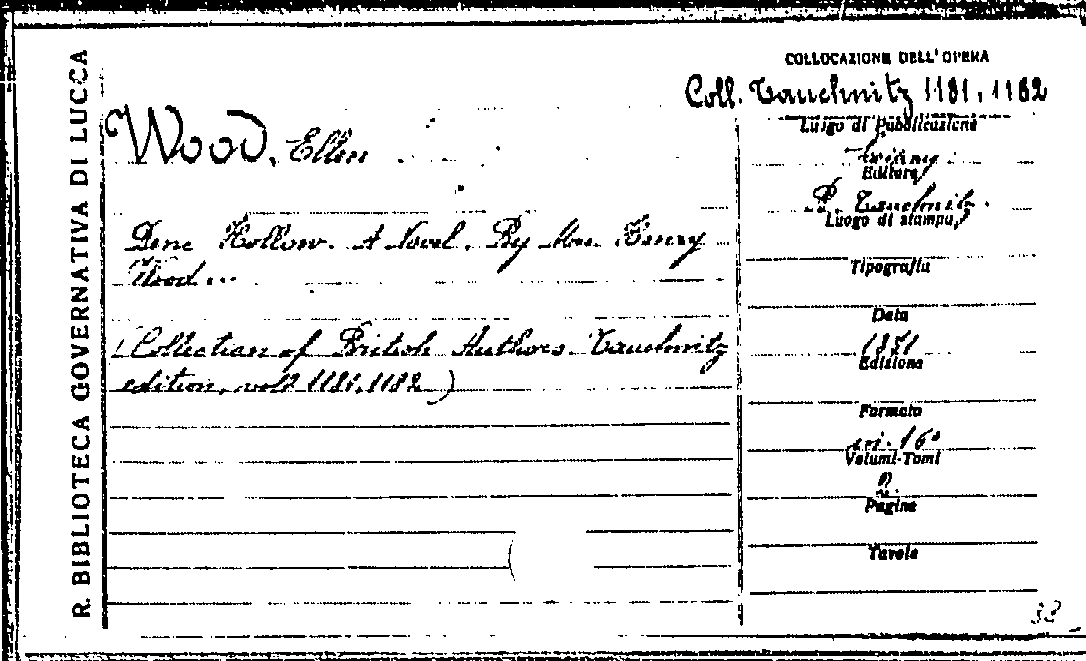 R. BIBLIOTECA GOVERNATIVA DI LUCCA
COLLOCAZIONE DELL'OPERA
Coll. Tauchnitz 1181, 1182
Wood, Ellen
Dene Hollow. A Novel. By Mrs. Henry
Wood...
(Collection of British Authors. Tauchnitz
edition, vols 1181, 1182)
Luogo di Pubblicazione
Leipzig
Editore
B. Tauchnitz.
Luogo di stampa
Tipografia
Data
1871
Edizione
Formato
16°
Volumi-Tomi
2.
Pagine
Tavole
33